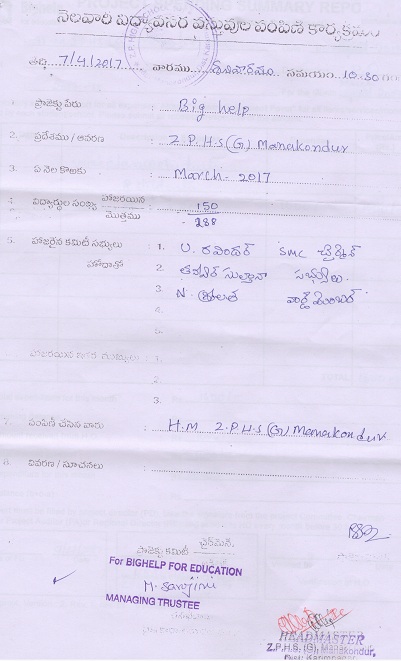 నెలవారీ విద్యావసర వస్తువుల పంపిణి కార్యక్రమం
తేది 7/4/2017 వారము శుక్రవారము సమయం 10.30
1. ప్రాజెక్టు పేరు : Big help
2. ప్రదేశము / ఆవరణ : Z.P.H.S (G) Manakondur
3. ఏ నెల కొఱకు : March - 2017
4. విద్యార్థుల సంఖ్య హాజరయిన : 150
మొత్తము 288
5. హాజరైన కమిటీ సభ్యులు : 1. U. రవిందర్ SMC చైర్మెన్
హోదాతో 2. సుల్తానా సభ్యులు.
3. N. వార్డ్ మెంబర్
4.
5.
: 1.
2.
3.
7. పంపిణీ చేసిన వారు : H.M Z.P.H.S (G) Manakondur
8. వివరణ / సూచనలు :
ప్రాజెక్టు కమిటీ చైర్‌మెన్.
For BIGHELP FOR EDUCATION
M. Sarojini
MANAGING TRUSTEE
HEADMASTER
Z.P.H.S. (G), Manakondur,
Dist: Karimnagar